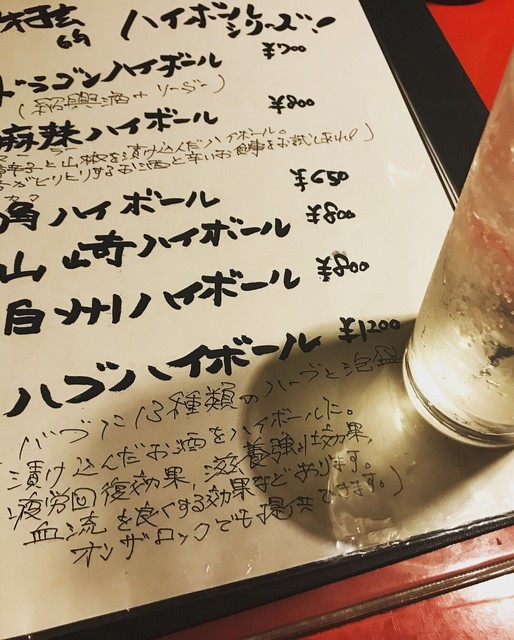 ハイボール
シリーズ!
ドラゴンハイボール ¥700
(紹興酒+ソーダー)
麻辣ハイボール ¥800
唐辛子と山椒を漬け込んだハイボール。
ヒリヒリするお酒と辛いお食事をお試しあれ!)
角ハイボール ¥650
山崎ハイボール ¥800
白州ハイボール ¥800
ハブハイボール ¥1200
ハブに13種類のハーブと泡盛
漬け込んだお酒をハイボールに。
疲労回復効果、滋養強壮効果、
血流を良くする効果などあります。
オンザロックでも提供できます。)